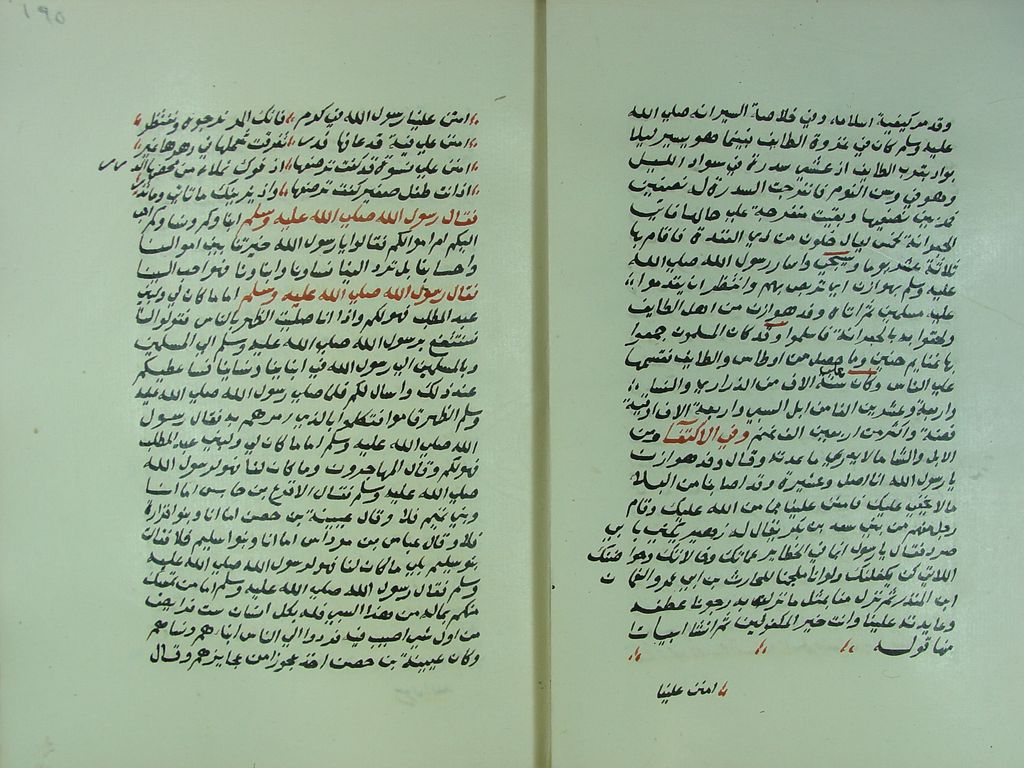 وقد مر كيفية اسلامه وفي خلاصة السير انه صلي الله
عليه وسلم كان في غزوة الطايف بينما هو يسير ليلا
بواد بقرب الطايف اذ غشي سدرة في سواد الليل
وهو في وسن النوم فانفرجت السدرة له نصفين
فمر بين نصفيها وبقيت منفرجة علي حالها فاتي
الجعرانة لخمس ليال خلون من ذي القعدة فاقام بها
ثلاثة عشر يوما وسيجي واما رسول الله صلي الله
عليه وسلم بهوازن ان يتربص بهم وانتظر ان يقدموا
عليه مسلمين ثم اتاه وفد هوازن من اهل الطايف
ولحقوا به بالجعرانة فاسلموا وقد كان المسلمون جمعوا
بها غنايم حنين وما حصل من اوطاس والطايف فقسمها
علي الناس وكان ستة الاف من الذراري والنساء
واربعة وعشرين الفا من ابل السبي واربعة الاف اوقية
فضة واكثر من اربعين الف غنم وفي الاكتفا ومن
الابل والشا ما لا يدري ما عدته وقال وفد هوازن
يا رسول الله انا اصل وعشيرة وقد اصابنا من البلاء
ما لا يخفي عليك فامنن علينا من الله عليك وقام
رجل منهم من بني سعد بن بكر يقال له زهير يكني بابي
صرد فقال يا رسول الله انما في الحظاير عماتك وخالاتك وحواضنك
اللاتي كن يكفلنك ولو انا ملحنا للحارث بن ابي شمر والنعمان
ابن المنذر ثم نزل منا بمثل ما نزلت به رجونا عطفه
وعايدته علينا وانت خير المكفولين ثم انشا ابيات
منها قوله
امنن علينا
190
امنن علينا رسول الله في كرم فانك المرء نرجوه وننتظر
امنن علي بيضة قد عاقها قدر مفرقت شملها في دهرها غير
امنن علي نسوة قد كنت ترضعها اذ فوك تملاه من محضها الدرر
اذ انت طفل صغير كنت ترضعها واذ يزينك ما تاتي وما تذر
فقال رسول الله صلي الله عليه وسلم ابناوكم ونساوكم احب
اليكم ام اموالكم فقالوا يا رسول الله خيرتنا بين اموالنا
واحسابنا بل ترد الينا نساونا وابناونا فهو احب الينا
فقال رسول الله صلي الله عليه وسلم اما ما كان لي ولبني
عبد المطلب فهو لكم واذا انا صليت الظهر بالناس فقولوا انا
نستشفع برسول الله صلي الله عليه وسلم الي المسلمين
وبالمسلمين الي رسول الله في ابناينا ونساينا فساعطيكم
عند ذلك واسال لكم فلما صلي رسول الله صلي الله عليه
وسلم الظهر قاموا فتكلموا بالذي امرهم به فقال رسول
الله صلي الله عليه وسلم اما ما كان لي ولبني عبد المطلب
فهو لكم وقال المهاجرون وما كان لنا فهو لرسول الله
صلي الله عليه وسلم فقال الاقرع بن حابس اما انا
وبني تميم فلا وقال عيينة بن حصن اما انا وبنو فزارة
فلا وقال عباس بن مرداس اما انا وبنو سليم فلا فقالت
بنو سليم بلي ما كان لنا فهو لرسول الله صلي الله عليه
وسلم فقال رسول الله صلي الله عليه وسلم اما من تمسك
منكم بحقه من هذا السبي فله بكل انسان ست فرايض
من اول سبي اصيب فيه فردوا الي الناس ابناهم ونساهم
وكان عيينة بن حصن اخذ عجوزا من عجايزهم وقال